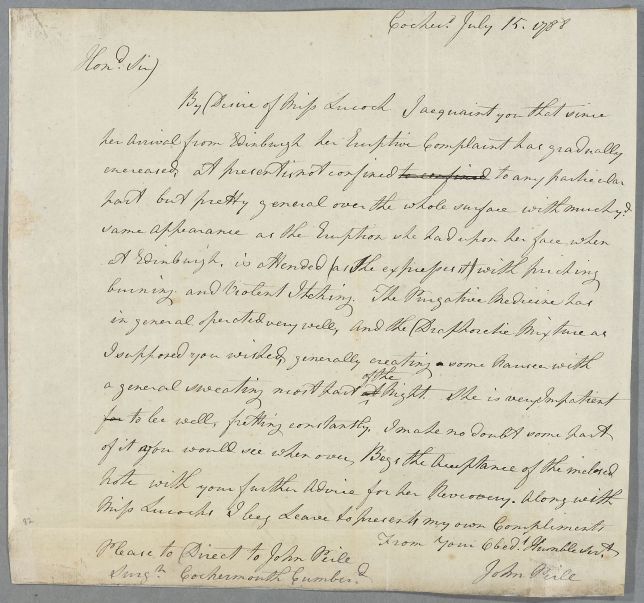 Cocherth July 15. 1788
Hond. Sir)
By Desire of Miss Lucock I acquaint you that since
her arrival from Edinburgh her Eruptive Complaint has gradually
encreased, at present is not confined to confined to any particular
part but pretty general over the whole surface with much ye.
same appearance as the Eruption she had upon her face when
at Edinburgh, is attended (as she expresses it) with pricking
burning and Violent Itching. The Purgative Medicine has
in general operated very well, and the Diaphoretic Mixture as
I supposed you wished, generally creating some Nausea with
a general sweating most part of the Night. She is very Impatient
for to be well, fretting constantly, I make no doubt some part
of it you would see when over, Begs the Acceptance of the inclosed
Note with your further Advice for her Recovery. Along with
Miss Lucocks I beg Leave to present my own Compliments
From Your Obedt. Humble Servt.
John Peile
Please to Direct to John Peile
Surgn. Cockermouth Cumberd.
92